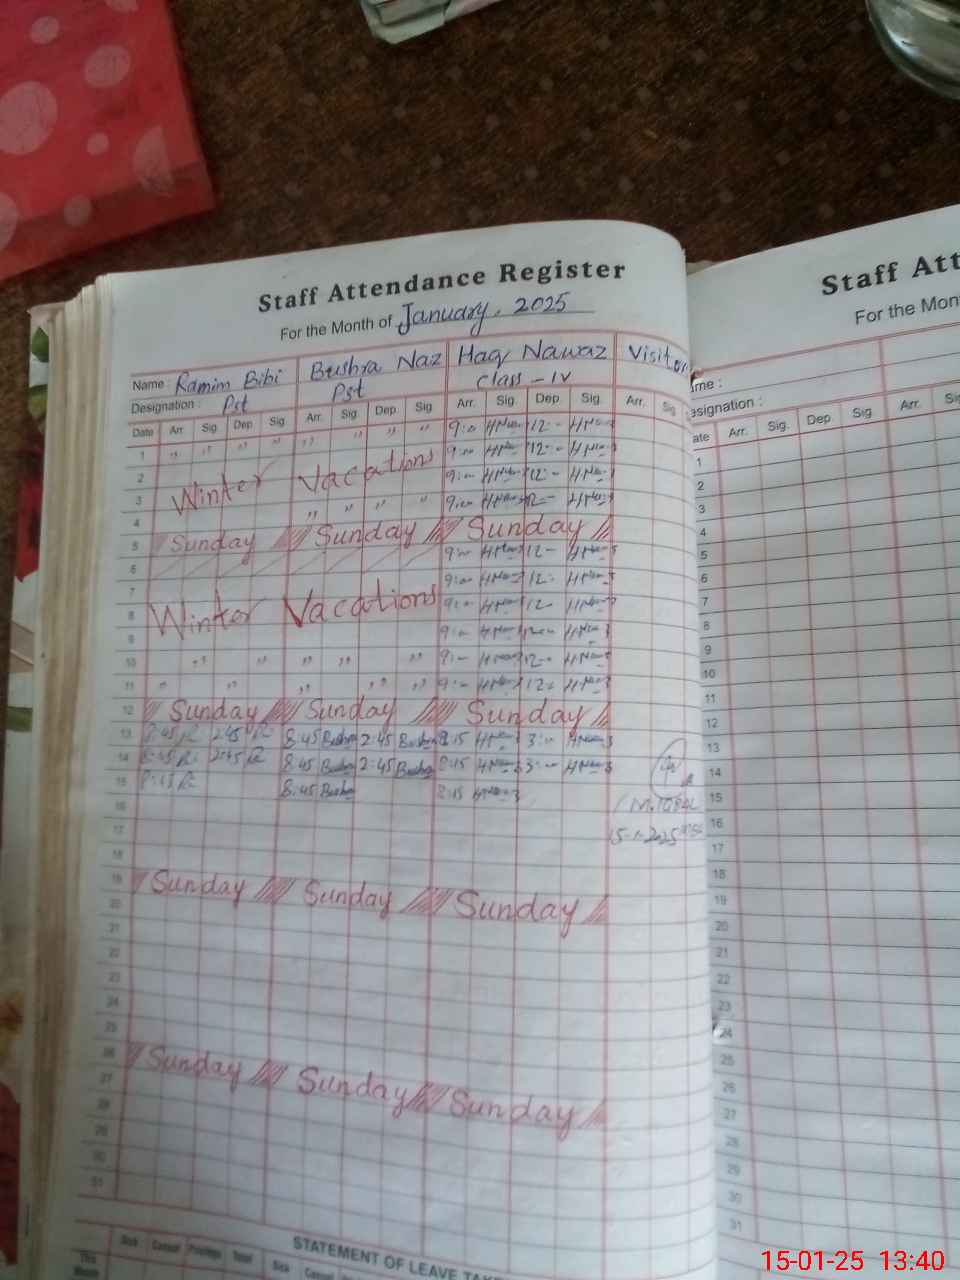 Staff Attendance Register
For the Month of January, 2025
Name : Ramim Bibi Bushra Naz Haq Nawaz Visitor
Designation : Pst Pst Class - IV
Date Arr. Sig. Dep. Sig. Arr. Sig. Dep. Sig. Arr. Sig. Dep. Sig. Arr. Sig
1 " " " " " " " " 9:00 12 -
2 9:00 12 -
Winter Vacations
3 9:00 12 -
4 " " " " 9:00 12 -
5 Sunday Sunday Sunday
6 9:00 12 -
7 9:00 12 -
8 Winter Vacations 9:00 12 -
9 9:00
10 " " " " " 9:00 12 -
11 " " " " " 9:00 12
12 Sunday Sunday Sunday
13 8:45 2:45 8:45 Bushra 2:45 Bushra 8:15 3:00
14 8:45 2:45 8:45 Bushra 2:45 Bushra 8:15 3:00
15 8:45 Bushra 8:15
16
17
18
19 Sunday Sunday Sunday
20
21
22
23
24
25
26 Sunday Sunday Sunday
27
28
29
30
31
STATEMENT OF LEAVE TAK
Sick Casual Privilege Total Sick Casual
This
Month
Staff Att
For the Mon
me :
esignation :
ate Arr. Sig. Dep. Sig. Arr.
1
2
3
4
5
6
7
8
9
10
11
12
13
14
15
16
17
18
19
20
21
22
23
24
25
26
27
28
29
30
31
15-01-25 13:40